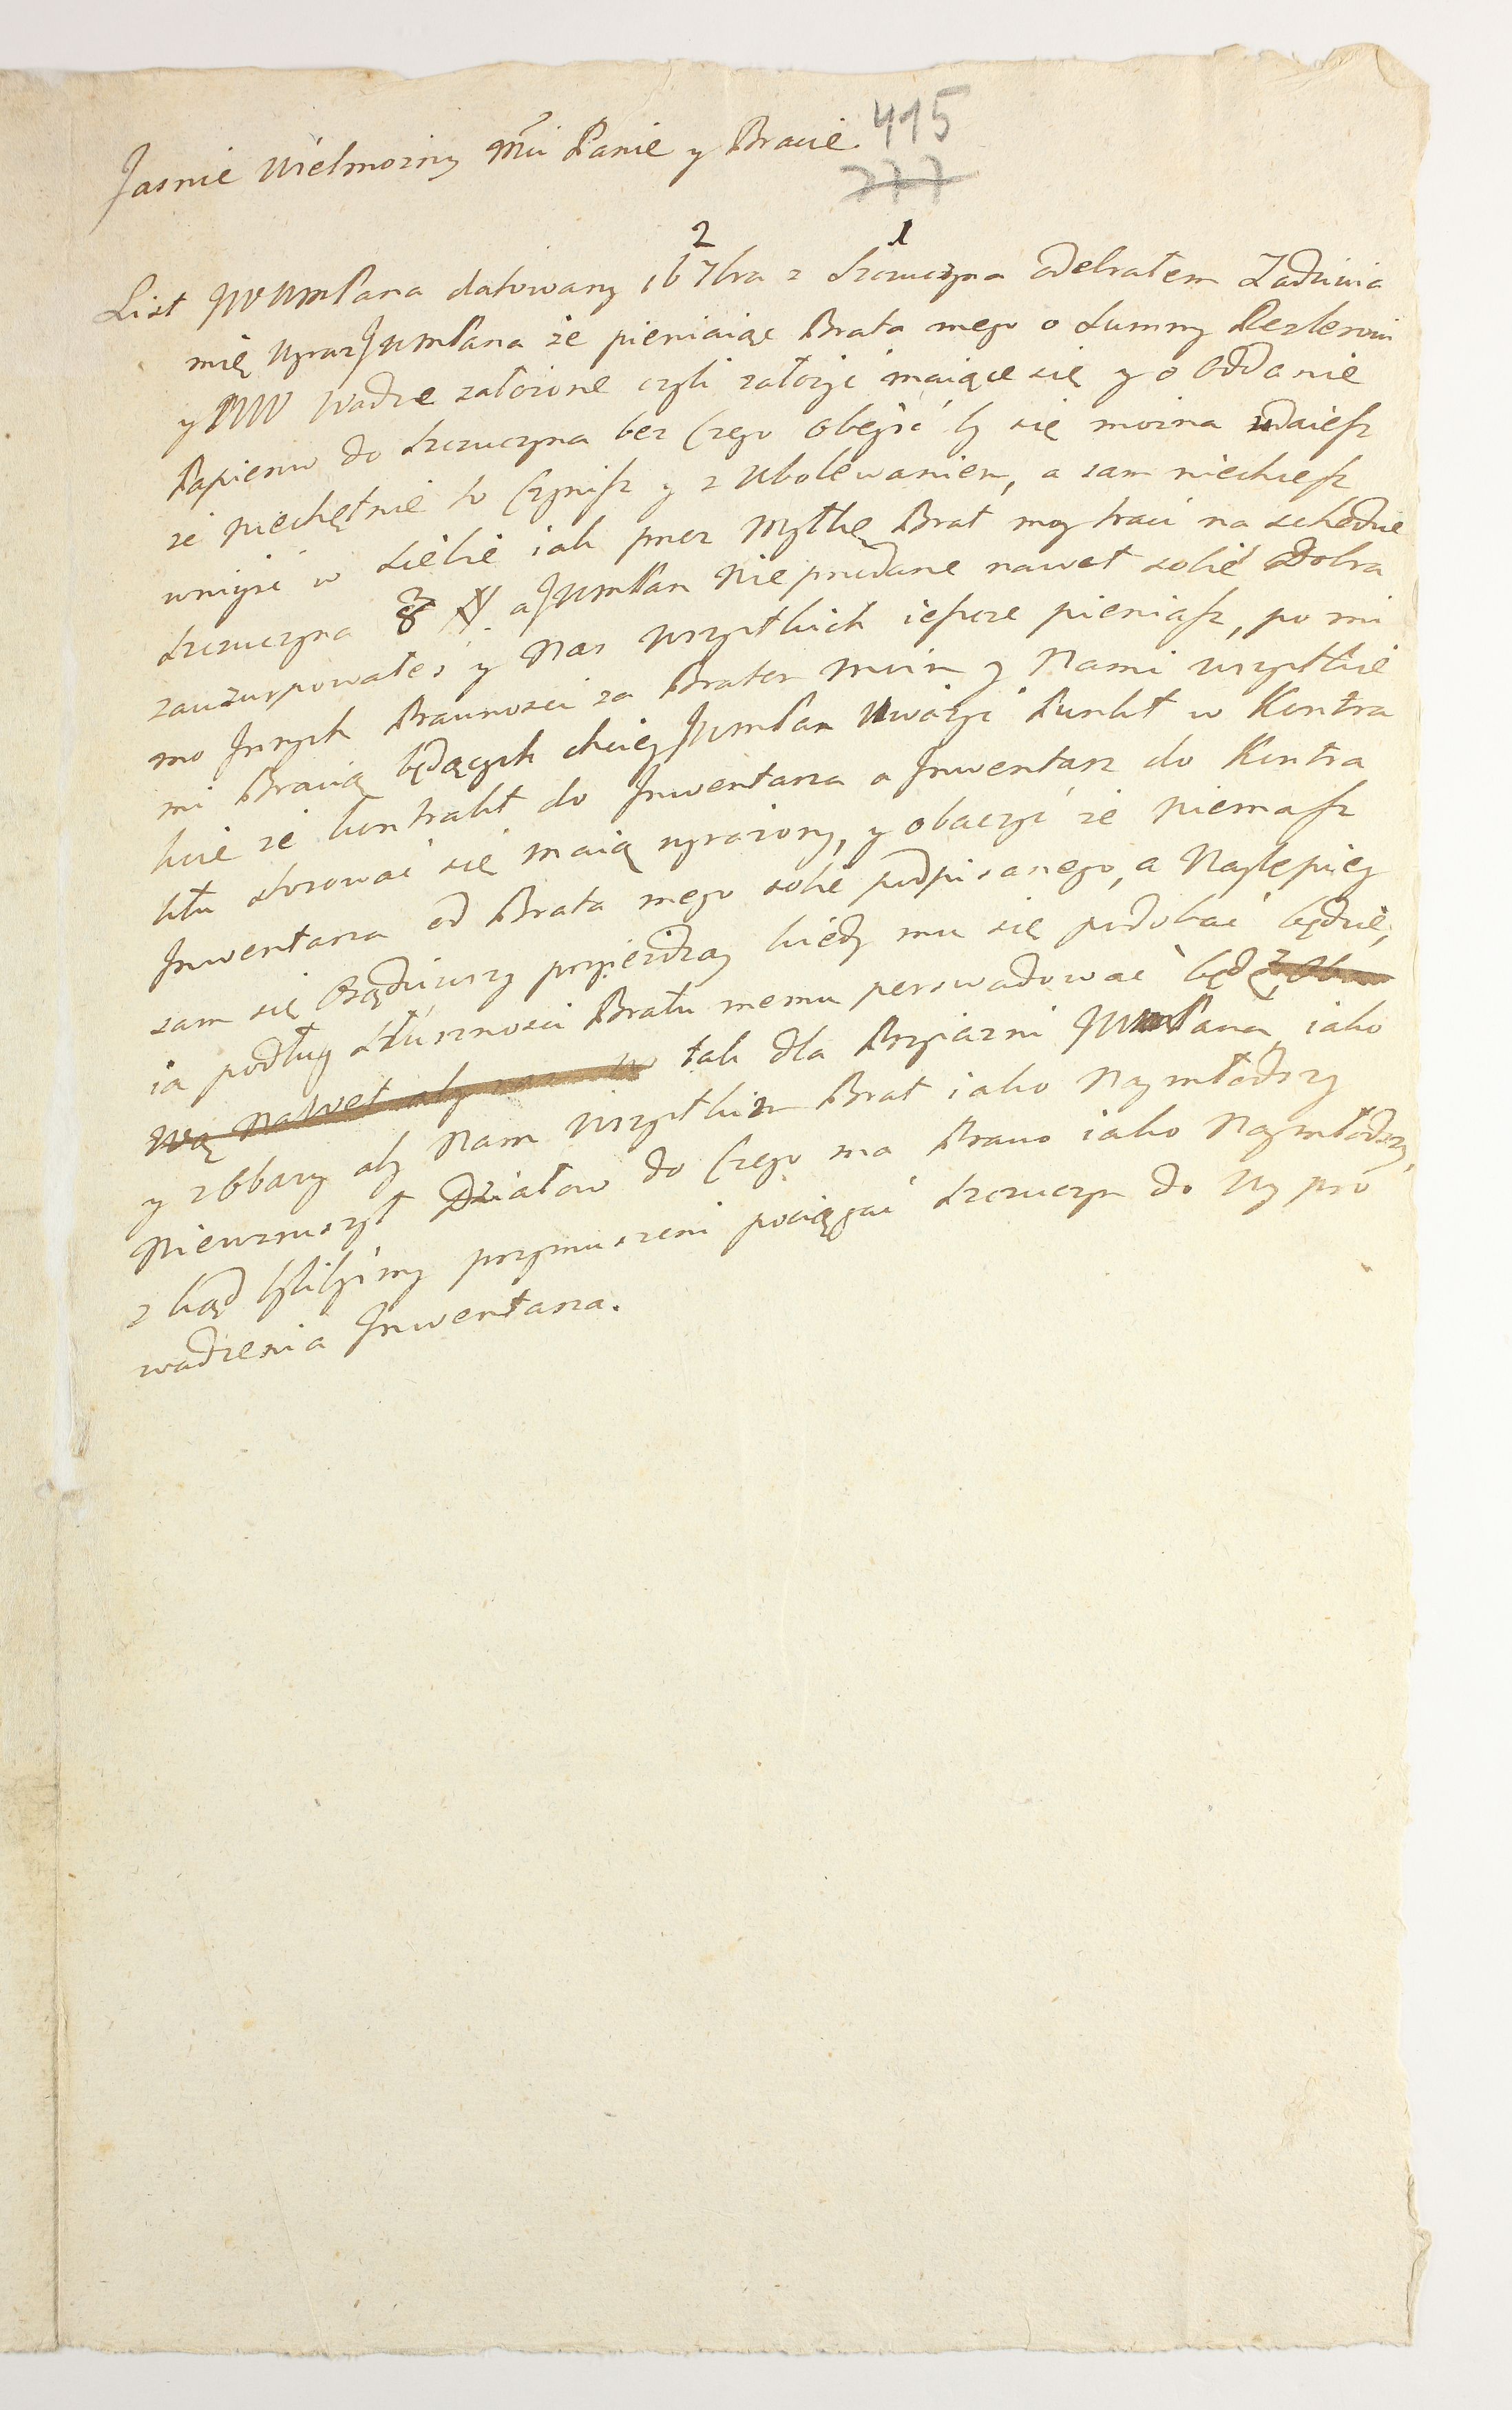 415
277
Jasnie Wielmozny Mci Panie y Bracie.
2 1
List JWWmPana datowany 16 7bra z Szczuczyna odebrałem Zadziwia
mię wyraz JWmPana że pieniaiąc Brata mego o Summy
y WW Wadze załozone czyli załozyc maiące się y o Oddanie
Papierow do Szczuczyna bez Czego obejść by się mozna udaiesz
że niechętnie to Czynisz y z Ubolewaniem, a sam niechcesz
wniyść w siebie iak przez Myłkę Brat moy traci na schedzie
Szczuczyna a JWmPan nieprzedane nawet sobie Dobra
zauzurpowałeś y Nas wszystkich ieszcze pieniasz, pomi
mo Innych Prawnosci za Bratem moim y Nami wszystkie
mi Bracią będących chciey JWmPan Uwazyć Punkt w Kontra
kcie ze kontrakt do Inwentarza a Inwentarz do Kontra
ktu stosować się maią wyrazony, y obaczyć że niemasz
Inwentarza od Brata mego sobie podpisanego, a Naylepiey
sam się Osądziwszy przyjezdzay kiedy mu się podobać będzie,
ia podług Słuszności Bratu memu perswadować będę
wą nawet aby tak dla Przyiazni JWmPana, iako
y z Obawy aby Nam wszystkim Brat iako Naymłodszy
niewzruszył Działow do Czego ma Prawo iako Naymłodszy,
z kąd bylibyśmy przymuszeni pociągać Szczuczyn do Wypro
wadzenia Inwentarza.